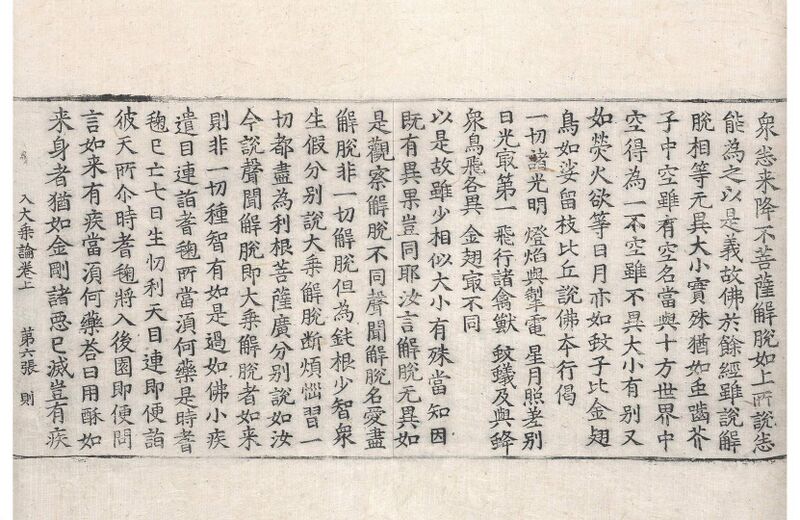 衆悉来降不菩薩解脫如上所說悉
能為之以是義故佛於餘經雖說解
脫相等无異大小實殊猶如䖝齧芥
子中空雖有空名當與十方世界中
空得為一不空雖不異大小有別又
如熒火欲等日月亦如蚊子比金翅
鳥如娑留枝比丘說佛本行偈
一切諸光明 燈焰與掣電 星月照差別
日光㝡第一 飛行諸禽獸 蚊蟻及與蜂
衆鳥飛各異 金翅㝡不同
以是故雖少相似大小有殊當知因
既有異果豈同耶汝言解脫无異如
是觀察解脫不同聲聞解脫名愛盡
解脫非一切解脫但為鈍根少智衆
生假分別說大乗解脫断煩惱習一
切都盡為利根菩薩廣分別說如汝
今說聲聞解脫即大乗解脫者如来
則非一切種智有如是過如佛小疾
遣目連詣耆䭲所當湏何藥是時耆
䭲已亡七日生忉利天目連即便詣
彼天所尒時耆䭲將入後園即便問
言如来有疾當湏何藥荅曰用酥如
来身者猶如金剛諸惡已滅豈有疾
入大乗論卷上 第六張 則